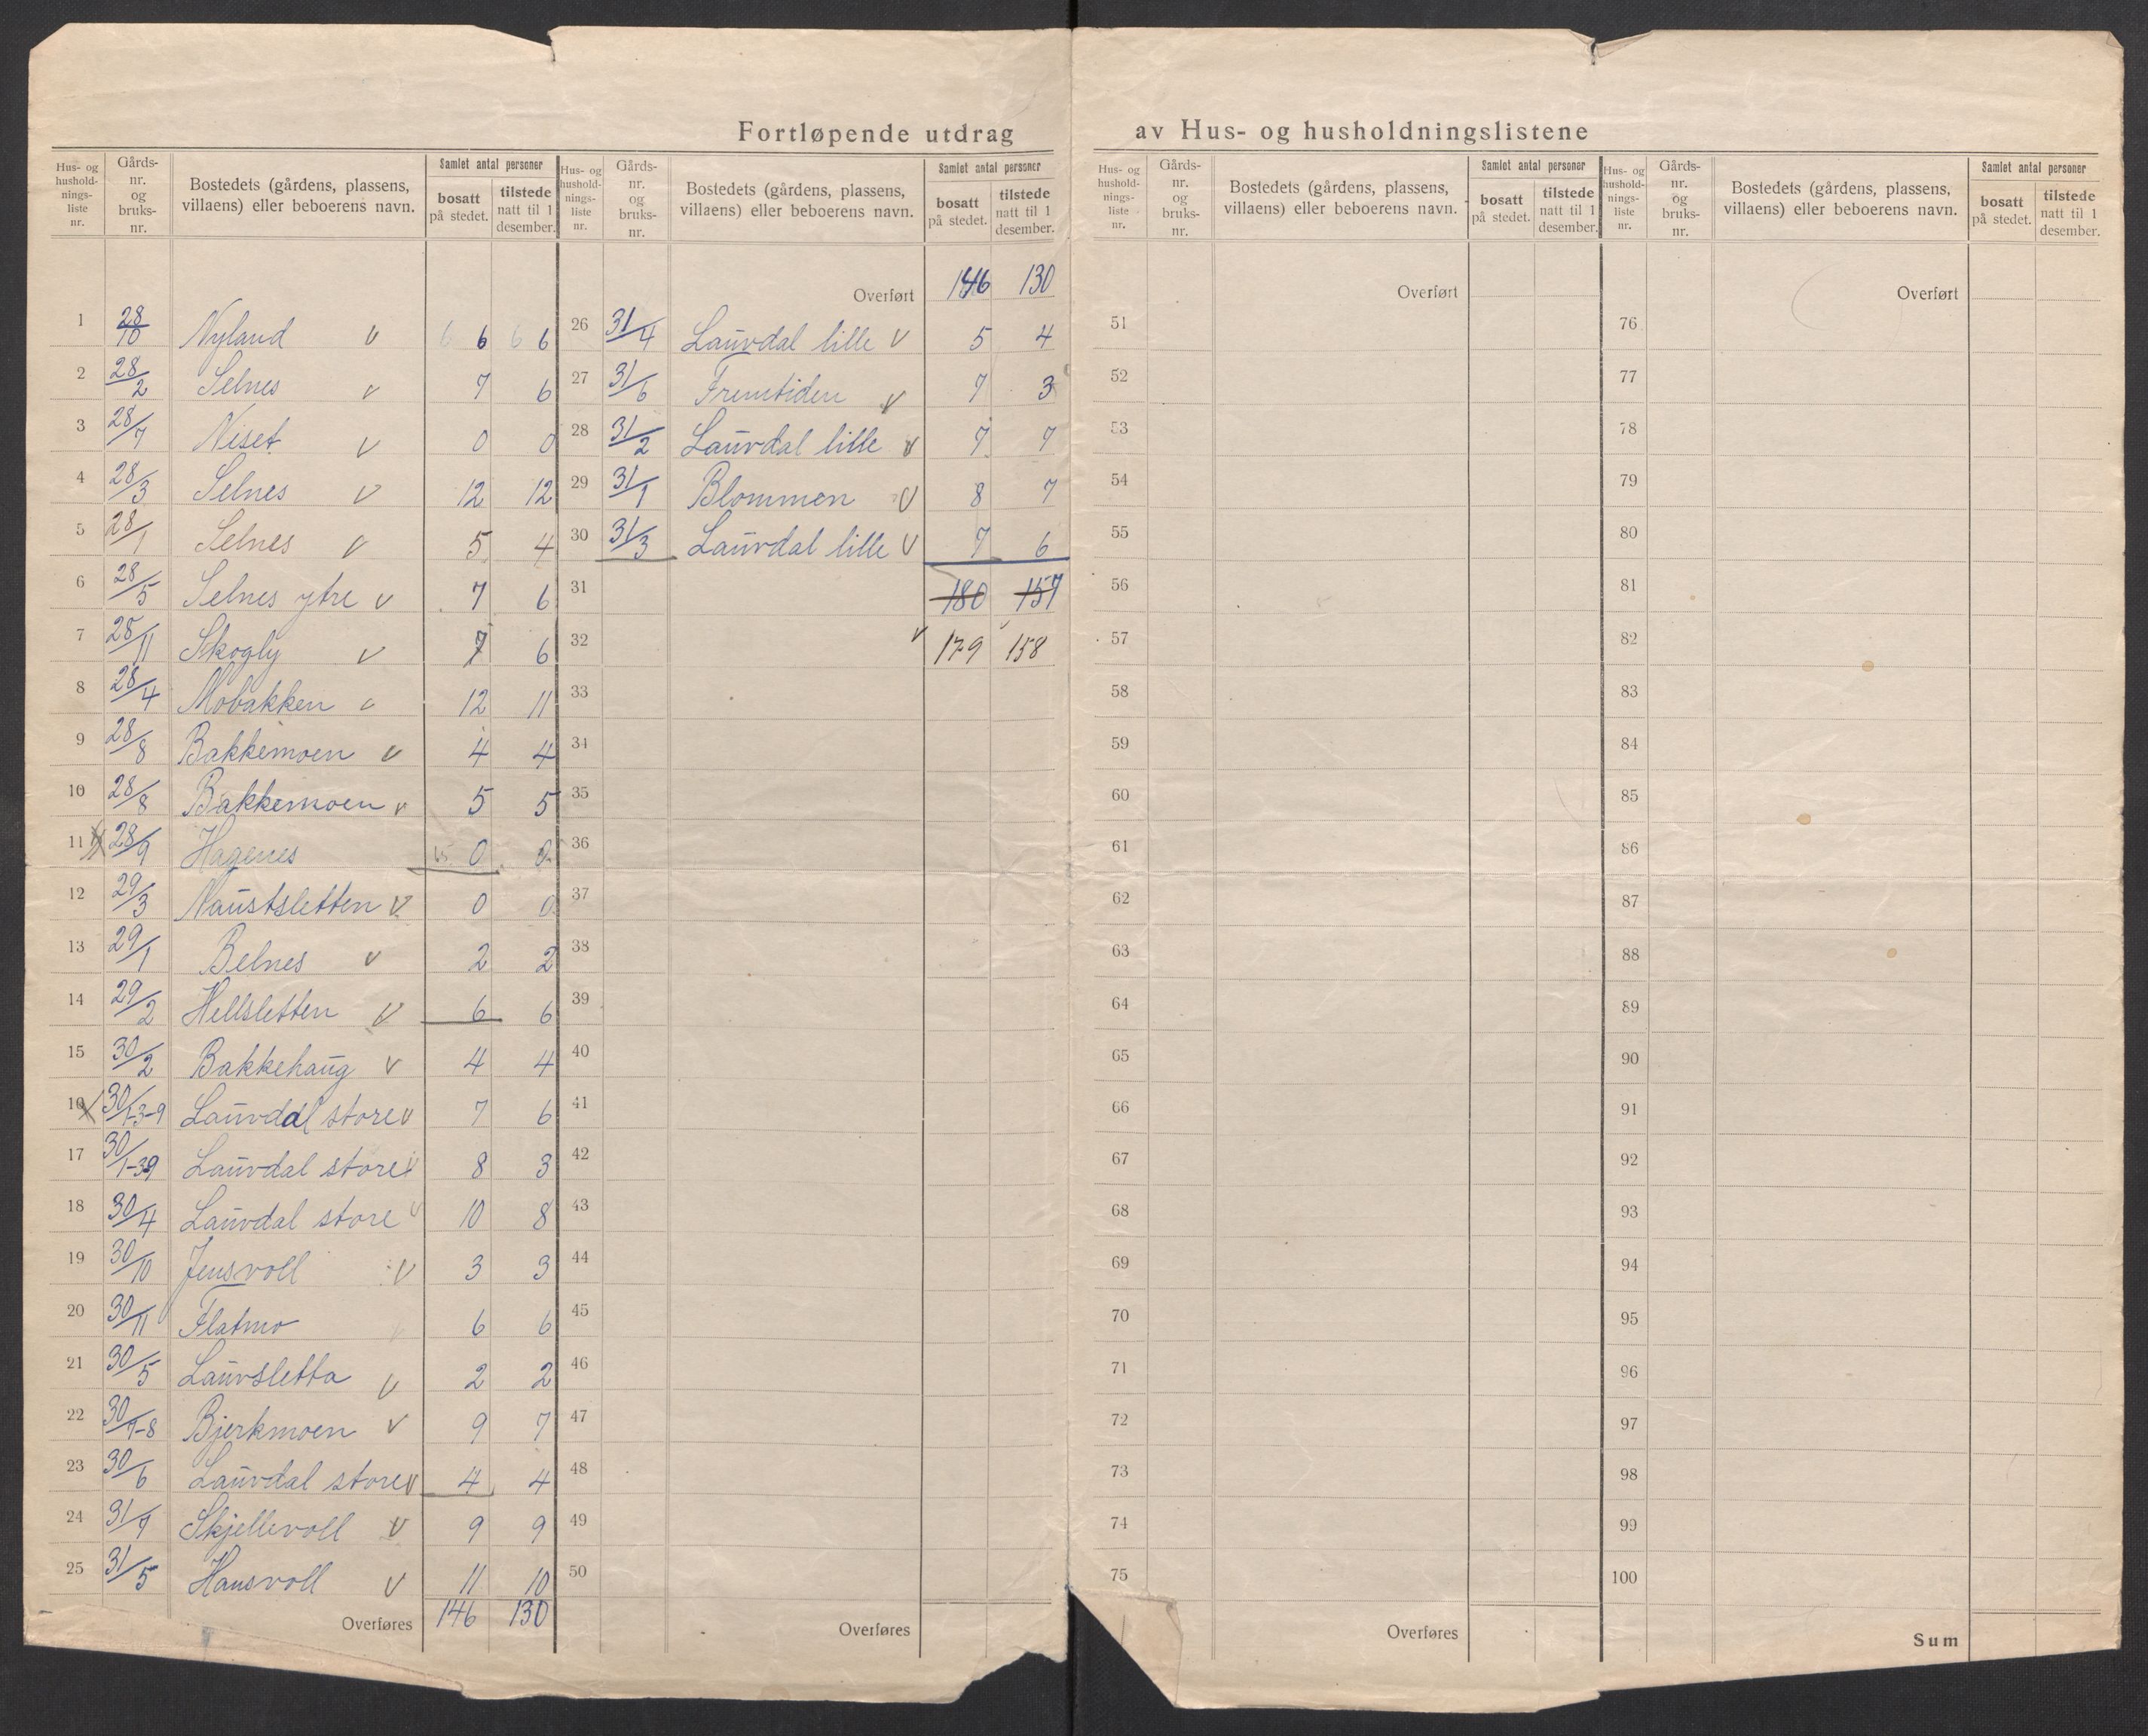 Fortløpende utdrag av Hus- og husholdningslistene
Hus- og hushold- nings- liste nr. | Gårds- nr. og bruks- nr. | Bostedets (gårdens, plassens, villaens) eller beboerens navn. | Samlet antal personer: bosatt på stedet. | tilstede natt til 1 desember.
1 28/10 Nyland v 6 6 6 6
2 28/2 Selnes v 7 6
3 28/7 Neset v 0 0
4 28/3 Selnes v 12 12
5 28/1 Selnes v 5 4
6 28/5 Selnes ytre v 7 6
7 28/11 Skogly v 7 6
8 28/4 Mobakken v 12 11
9 28/8 Bakkemoen v 4 4
10 28/8 Bakkemoen v 5 5
11 28/9 Hagenes 65 0 0
12 29/3 Naustsletten v 0 0
13 29/1 Belnes v 2 2
14 29/2 Hellsletten v 6 6
15 30/2 Bakkehaug v 4 4
16 30/1-3-9 Lauvdal store v 7 6
17 30/1-39 Lauvdal store v 8 3
18 30/4 Lauvdal store v 10 8
19 30/10 Jensvoll v 3 3
20 30/11 Flatmo v 6 6
21 30/5 Lauvsletta v 2 2
22 30/7-8 Bjerkmoen v 9 7
23 30/6 Lauvdal store v 4 4
24 31/7 Skjellevoll v 9 9
25 31/5 Hansvoll v 11 10
Overføres 146 130
Hus- og hushold- nings- liste nr. | Gårds- nr. og bruks- nr. | Bostedets (gårdens, plassens, villaens) eller beboerens navn. | Samlet antal personer: bosatt på stedet. | tilstede natt til 1 desember.
Overført 146 130
26 31/4 Lauvdal lille v 5 4
27 31/6 Fremtiden v 7 3
28 31/2 Lauvdal lille v 7 7
29 31/1 Blommen v 8 7
30 31/3 Lauvdal lille v 7 6
31 180 157
32 v 179 158
33
34
35
36
37
38
39
40
41
42
43
44
45
46
47
48
49
50
Overføres
Hus- og hushold- nings- liste nr. | Gårds- nr. og bruks- nr. | Bostedets (gårdens, plassens, villaens) eller beboerens navn. | Samlet antal personer: bosatt på stedet. | tilstede natt til 1 desember.
Overført
51
52
53
54
55
56
57
58
59
60
61
62
63
64
65
66
67
68
69
70
71
72
73
74
75
Overføres
Hus- og hushold- nings- liste nr. | Gårds- nr. og bruks- nr. | Bostedets (gårdens, plassens, villaens) eller beboerens navn. | Samlet antal personer: bosatt på stedet. | tilstede natt til 1 desember.
Overført
76
77
78
79
80
81
82
83
84
85
86
87
88
89
90
91
92
93
94
95
96
97
98
99
100
Sum